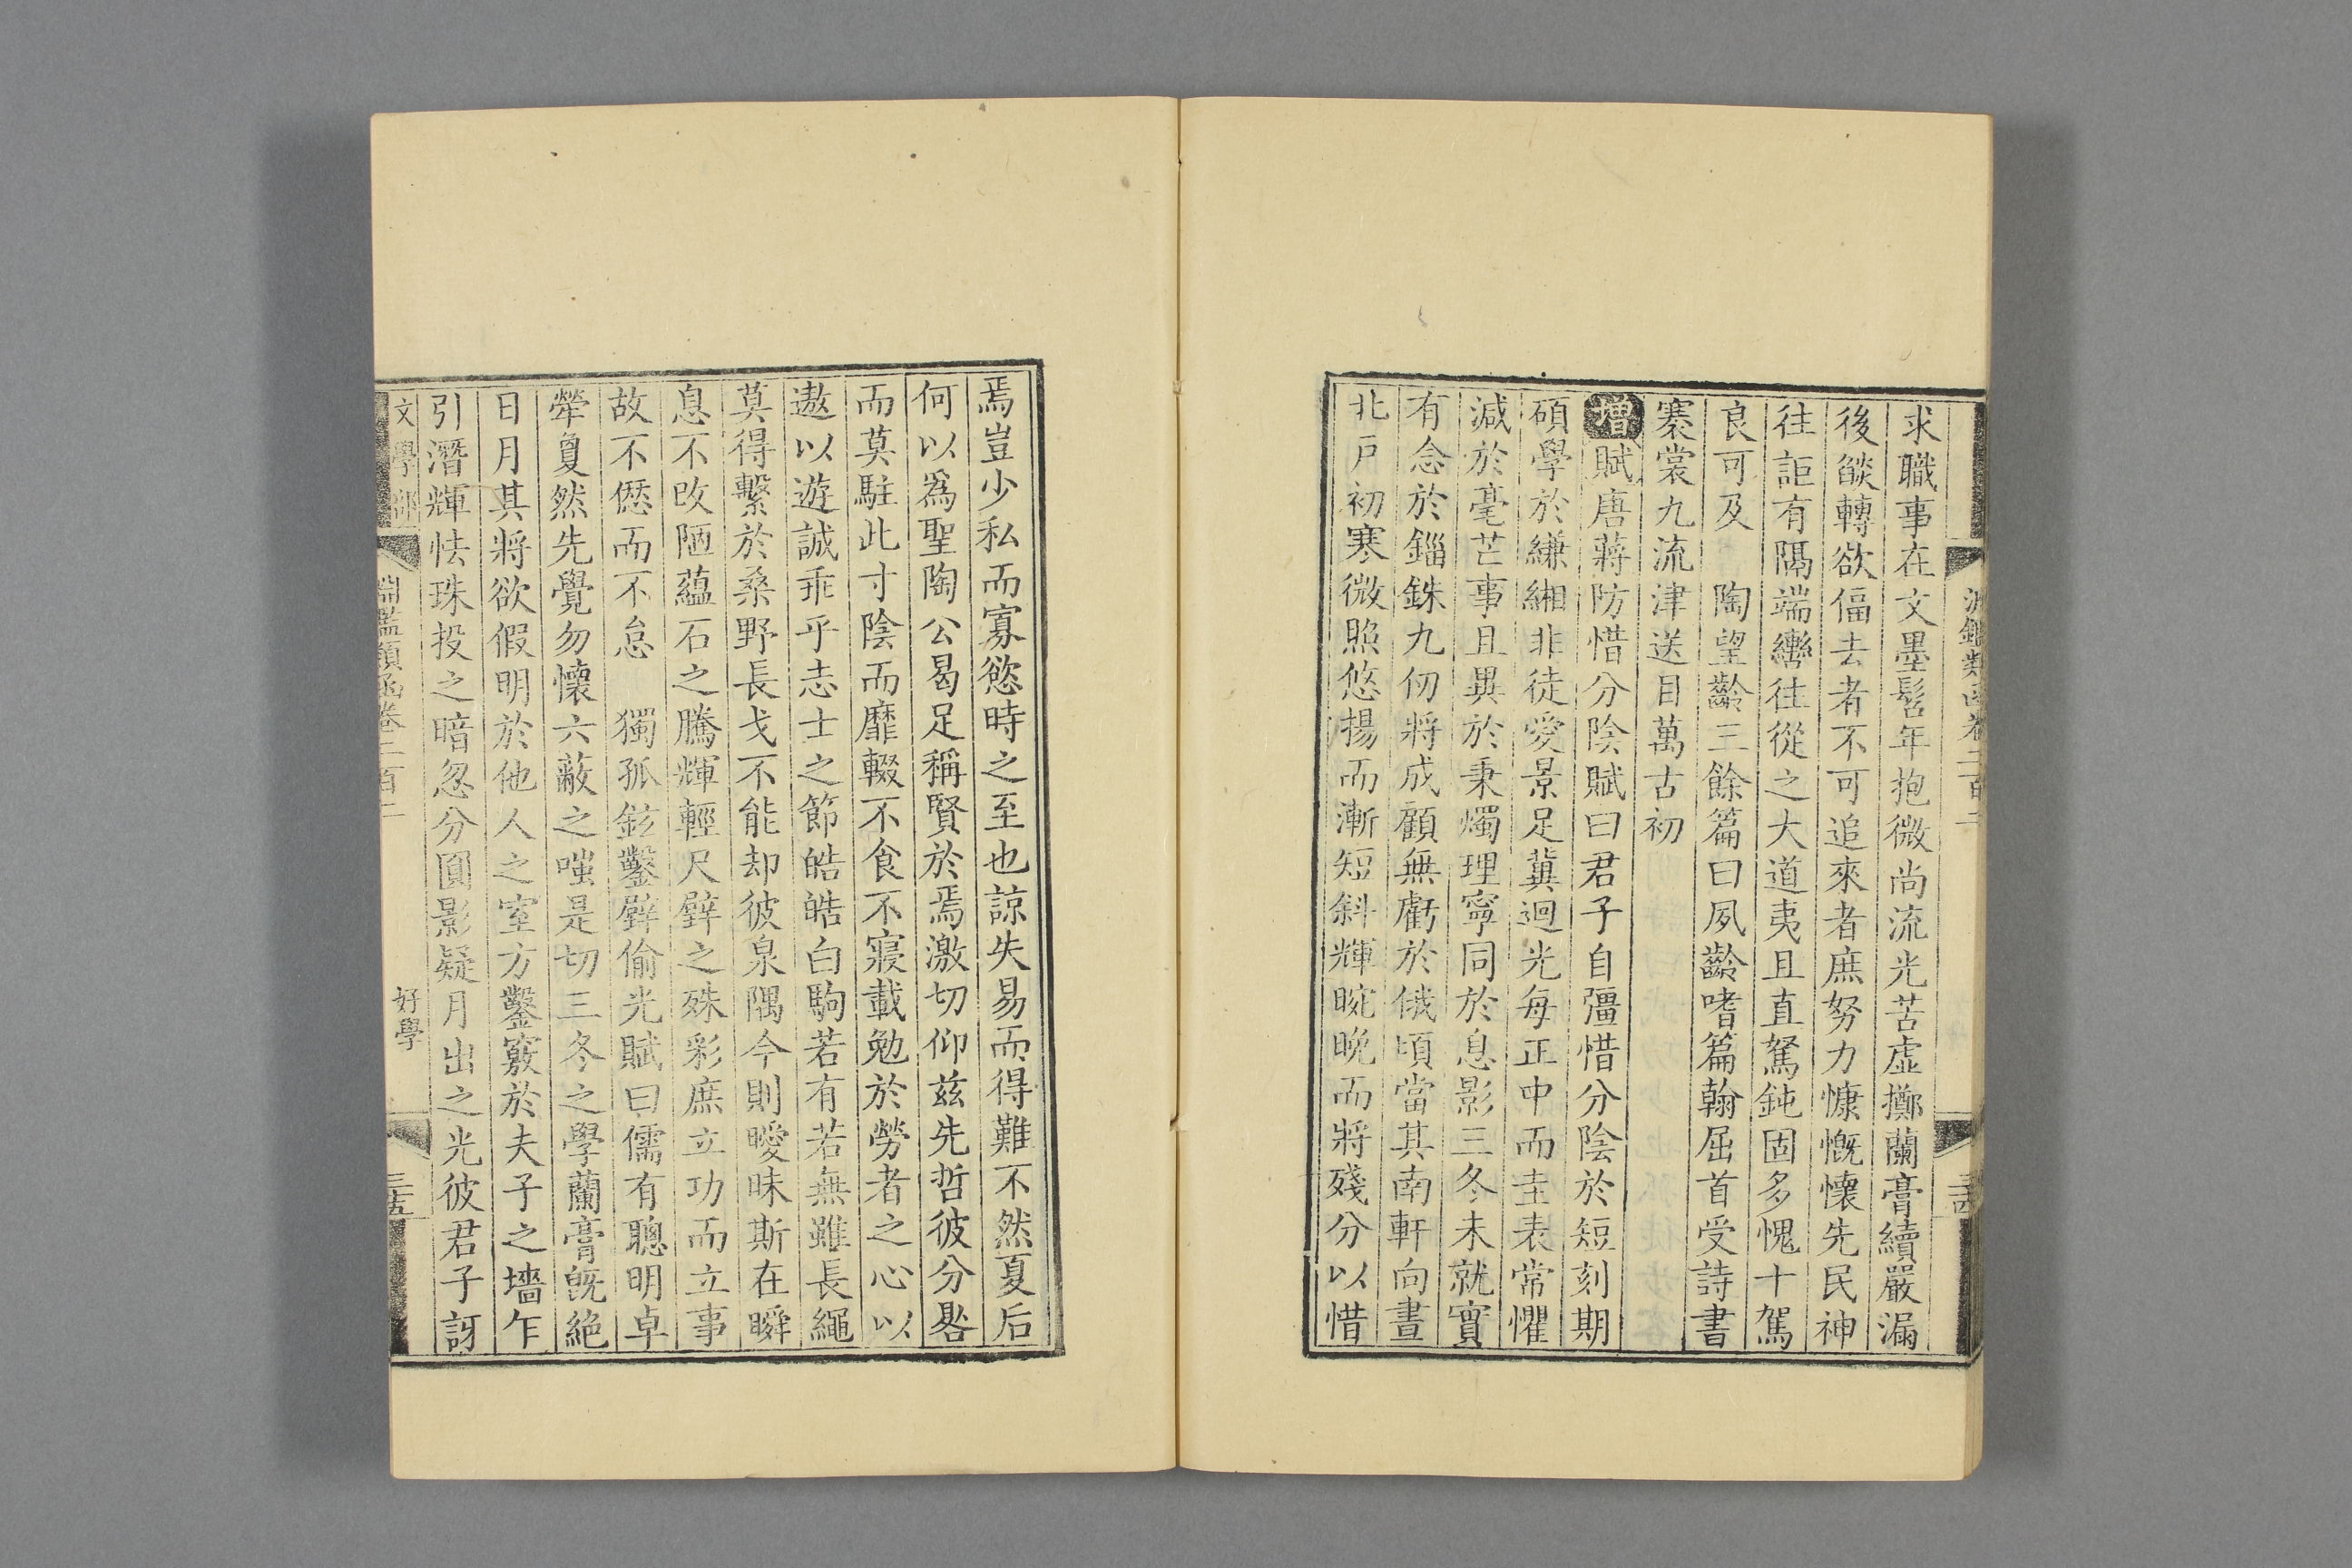 求職事在文墨髫年抱微尚流光苦虛擲蘭膏續嚴漏
後燄轉欲偪去者不可追來者庶努力慷慨懷先民神
往詎有隔端轡往從之大道夷且直駑鈍固多愧十駕
良可及 陶望齡三餘篇曰夙齡嗜篇翰屈首受詩書
褰裳九流津送目萬古初
增賦唐蔣防惜分陰賦曰君子自彊惜分陰於短刻期
碩學於縑緗非徒愛景足冀迴光每正中而圭表常懼
減於毫芒事且異於秉燭理寧同於息影三冬未就實
有念於錙銖九仞將成顧無虧於俄頃當其南軒向晝
北戸初寒微照悠揚而漸短斜輝晼晚而將殘分以惜
焉豈少私而寡慾時之至也諒失易而得難不然夏后
何以爲聖陶公曷足稱賢於焉激切仰兹先哲彼分晷
而莫駐此寸陰而靡輟不食不寢載勉於勞者之心以
遨以遊誠乖乎志士之節皓皓白駒若有若無雖長繩
莫得繫於桑野長戈不能却彼泉隅今則曖昧斯在瞬
息不改陋蘊石之騰輝輕尺璧之殊彩庶立功而立事
故不愆而不怠 獨孤鉉鑿壁偷光賦曰儒有聰明卓
犖夐然先覺勿懷六蔽之嗤是切三冬之學蘭膏旣絶
日月其將欲假明於他人之室方鑿竅於夫子之墻乍
引潛輝怯珠投之暗忽分圓影疑月出之光彼君子訝
文學部 淵鑑類函卷二百二 好學 三五